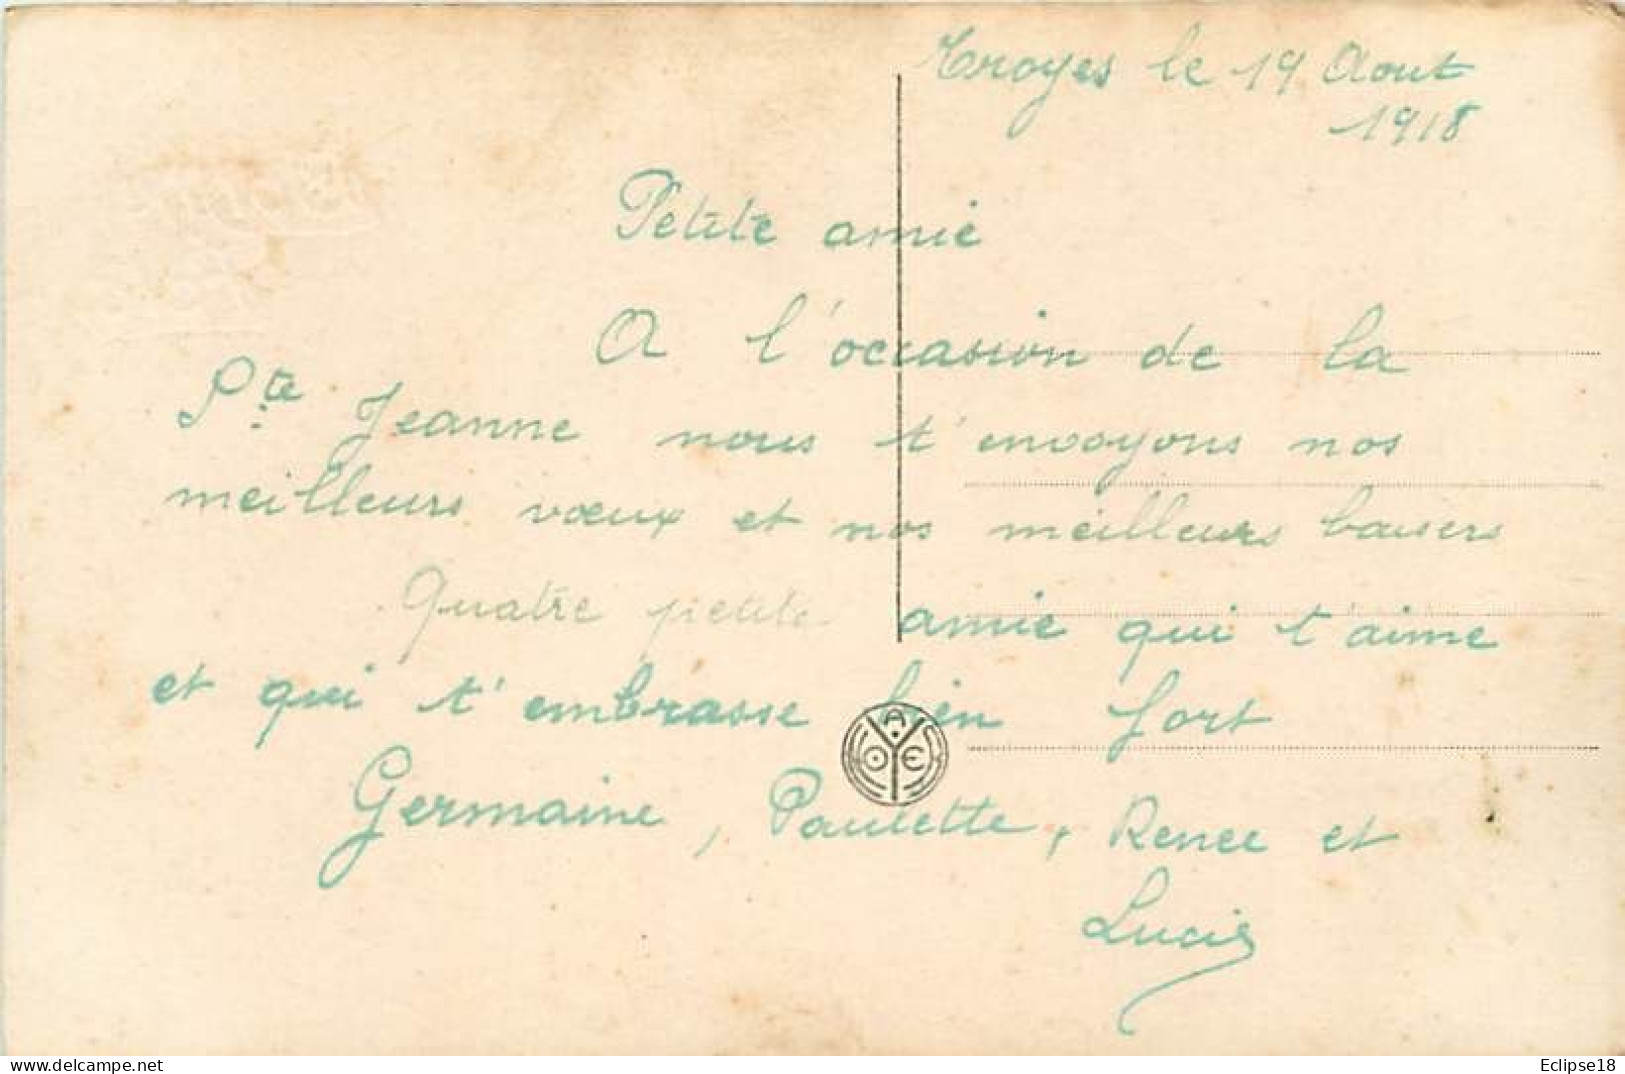 Troyes le 19 Aout
1918
Petite amie
A l'occasion de la
Ste Jeanne nous t'envoyons nos
meilleurs vœux et nos meilleurs baisers
Quatre petite amie qui t'aime
et qui t'embrasse bien fort
Germaine, Paulette, Renee et
Lucie
Eclipse18